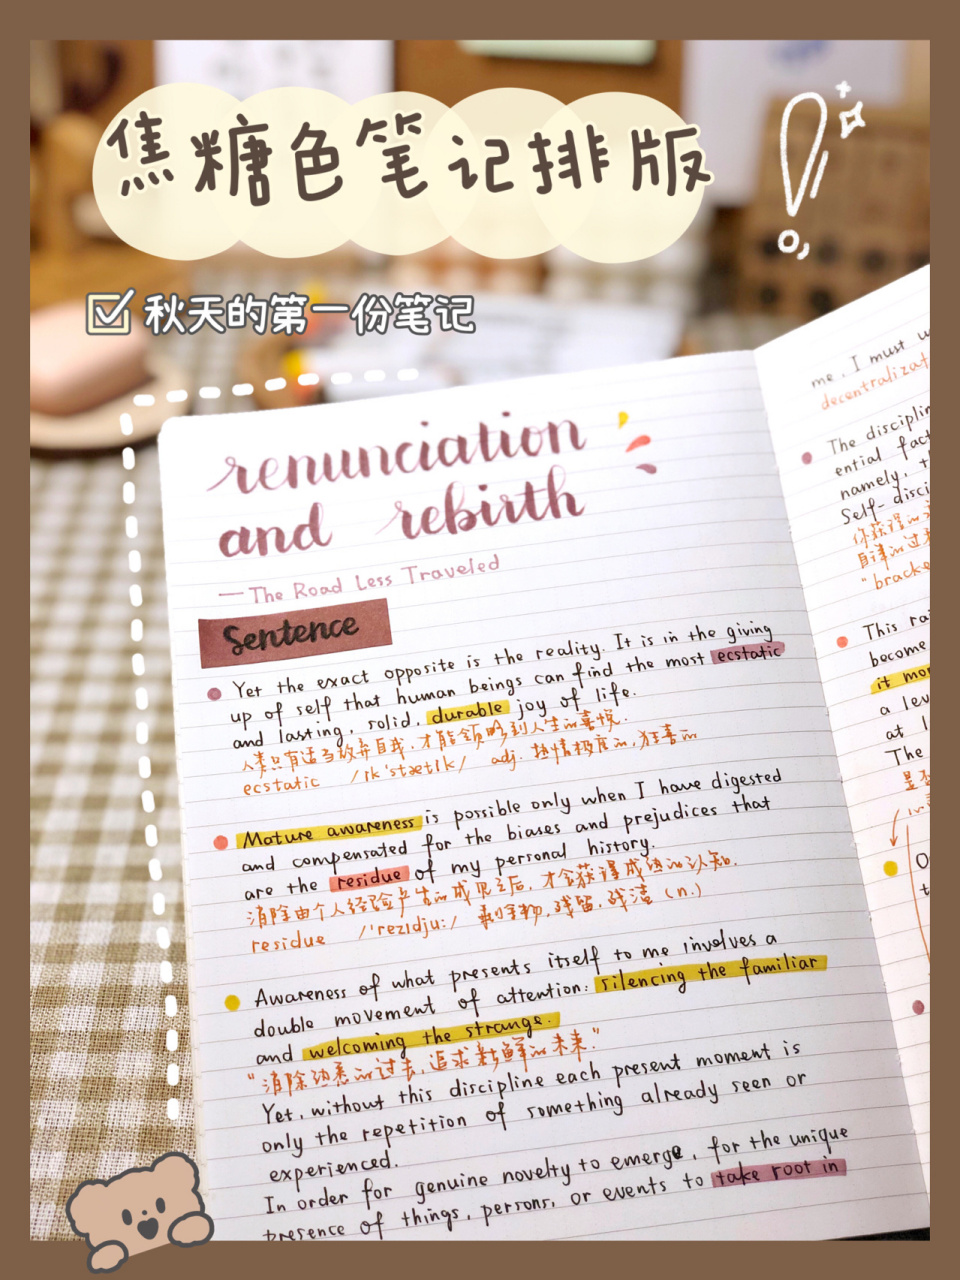 焦糖色笔记排版
秋天的第一份笔记
renunciation
and rebirth
—The Road Less Traveled
Sentence
Yet the exact opposite is the reality. It is in the giving
up of self that human beings can find the most ecstatic
and lasting, solid, durable joy of life.
人类只有适当放弃自我,才能领略到人生的喜悦.
ecstatic /ɪk'stætɪk/ adj. 热情极度的,狂喜的
Mature awareness is possible only when I have digested
and compensated for the biases and prejudices that
are the residue of my personal history.
消除由个人经验产生的成见之后,才会获得成熟的认知.
residue /'rezɪdju:/ 剩余物,残留,残渣 (n.)
Awareness of what presents itself to me involves a
double movement of attention: silencing the familiar
and welcoming the strange.
"消除熟悉的过去,追求新鲜的未来."
Yet, without this discipline each present moment is
only the repetition of something already seen or
experienced.
In order for genuine novelty to emerge, for the unique
presence of things, persons, or events to take root in
me, I must u
decentralizat
The disciplin
ential fact
namely, th
Self-disci
你获得的
自律的过
"bracke
This ra
become
it mo
a lev
at l
The
是否